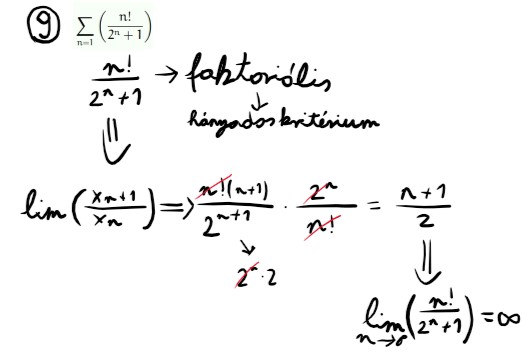 9 ∑ n=1 ( n! / 2ⁿ + 1 )
n! / 2ⁿ+1 → faktoriális
↓
hányados kritérium
⇓
lim ( xₙ₊₁ / xₙ ) => n!(n+1) / 2ⁿ⁺¹ · 2ⁿ / n! = n+1 / 2
↓ ⇓
2ⁿ · 2
lim n→∞ ( n! / 2ⁿ+1 ) = ∞